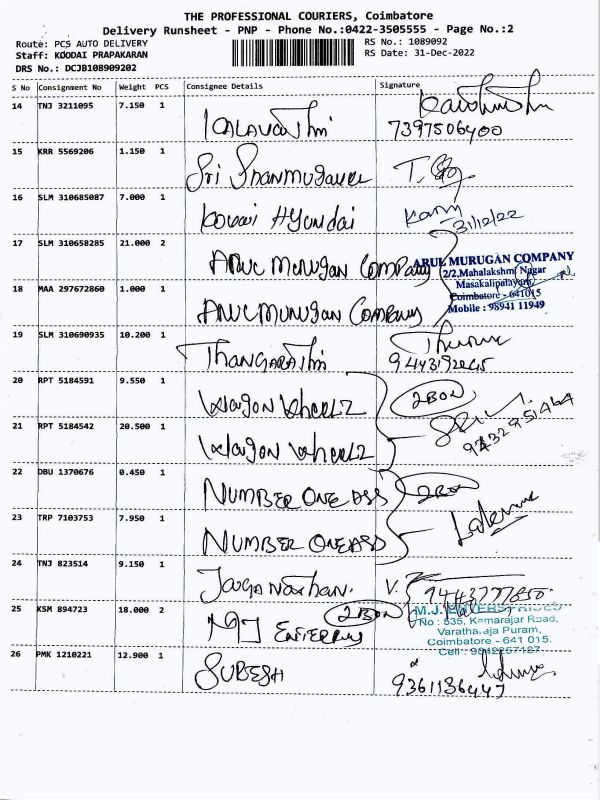 THE PROFESSIONAL COURIERS, Coimbatore
Delivery Runsheet - PNP - Phone No.:0422-3505555 - Page No.:2
Route: PCS AUTO DELIVERY
RS No.: 1089092
Staff: KOODAI PRAPAKARAN
RS Date: 31-Dec-2022
DRS No.: DCJB108909202
S No Consignment No Weight PCS Consignee Details Signature
14 TNJ 3211095 7.150 1
7397506400
15 KRR 5569206 1.150 1 Sri Shanmugavel
16 SLM 310685087 7.000 1 Kovai Hyundai 31/12/22
17 SLM 310658285 21.000 2 Arul Murugan Company
ARUL MURUGAN COMPANY
2/2, Mahalakshmi Nagar
Masakalipalayam,
Coimbatore - 641015
Mobile : 98941 11949
18 MAA 297672860 1.000 1 Arul Murugan Company
19 SLM 310690935 10.200 1
20 RPT 5184591 9.550 1 Wagon Wheelz 2BOX
21 RPT 5184542 20.500 1 Wagon Wheelz
22 DBU 1370676 0.450 1 NUMBER ONE ASS 2BOX
23 TRP 7103753 7.950 1 NUMBER ONE ASS
24 TNJ 823514 9.150 1 Jaganathan. V.
25 KSM 894723 18.000 2 MJ 2BOX
M.J. ENTERPRISES
No : 535, Kamarajar Road,
Varatharaja Puram,
Coimbatore - 641 015.
Cell : 9842257127
26 PMK 1210221 12.900 1 SURESH
9361136447